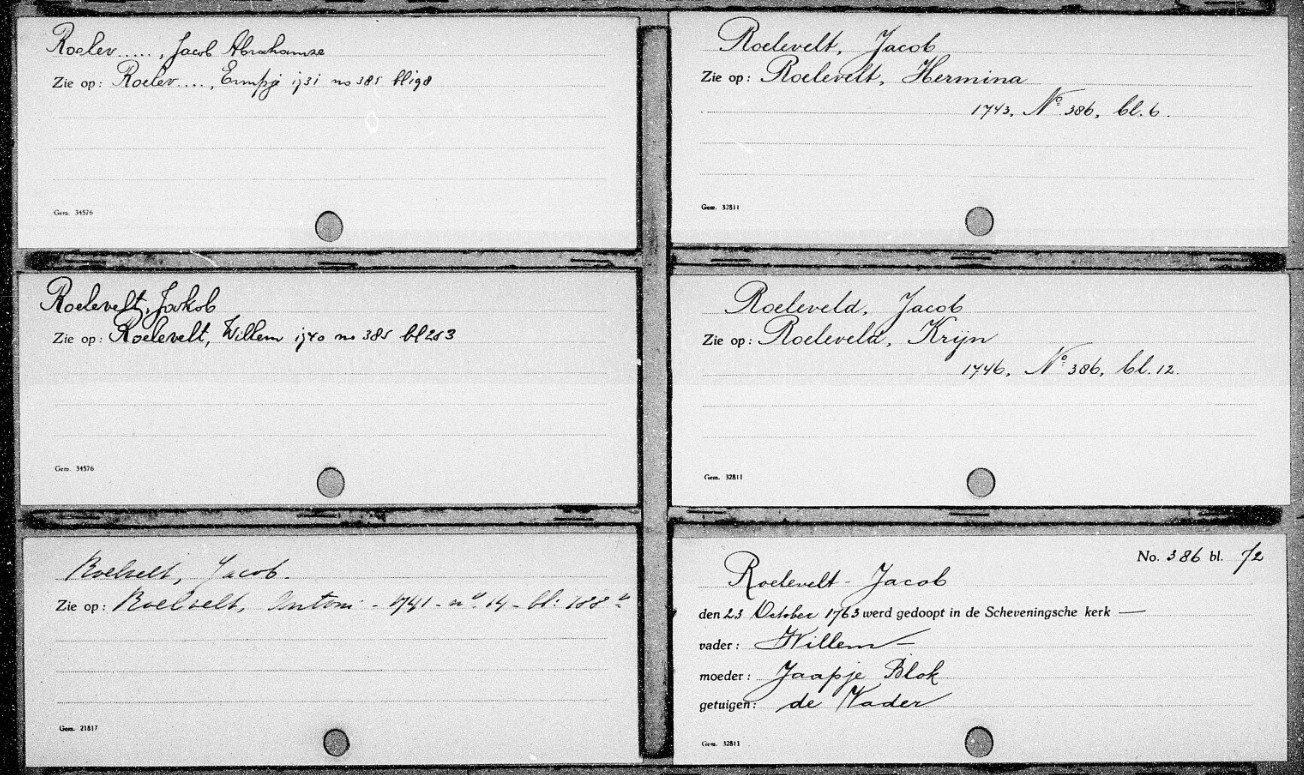 Roelev....., Jacob Abrahamze
Zie op: Roelev...., Ermpje 1731 no 385 bl 198
Gem. 34576
Roelevelt, Jakob
Zie op: Roelevelt, Willem 1740 no 385 bl 253
Gem. 34576
Roelvelt, Jacob.
Zie op: Roelvelt, Antoni - 1741 - no 14 - bl: 188
Gem. 21817
Roelevelt, Jacob
Zie op: Roelevelt, Hermina
1743, No 386, bl. 6.
Gem. 32811
Roeleveld, Jacob
Zie op: Roeleveld, Krijn
1746, No 386, bl. 12.
Gem. 32811
No. 386 bl. 72
Roelevelt - Jacob
den 23 October 1763 werd gedoopt in de Scheveningsche kerk —
vader: Willem —
moeder: Jaapje Blok
getuigen: de Vader
Gem. 32811